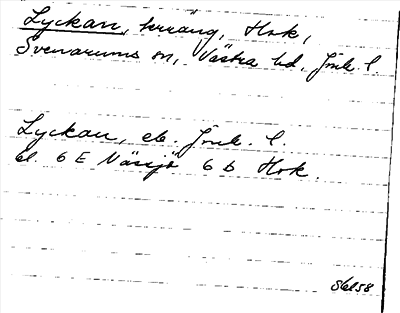 Lyckan, terräng, Hok,
Svenarums sn, Västra hd. Jönk. l.
Lyckan, eb. Jönk. l.
bl. 6 E Nässjö 6 b Hok.